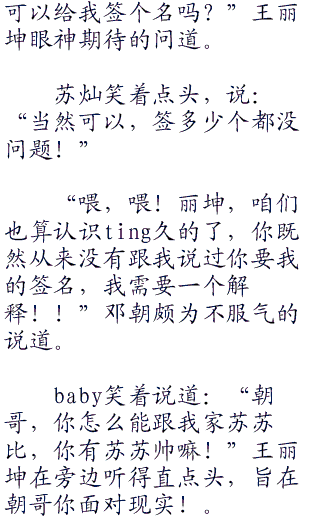 可以给我签个名吗？”王丽
坤眼神期待的问道。
苏灿笑着点头，说：
“当然可以，签多少个都没
问题！”
“喂，喂！丽坤，咱们
也算认识ting久的了，你既
然从来没有跟我说过你要我
的签名，我需要一个解
释！！”邓朝颇为不服气的
说道。
baby笑着说道：“朝
哥，你怎么能跟我家苏苏
比，你有苏苏帅嘛！”王丽
坤在旁边听得直点头，旨在
朝哥你面对现实！。